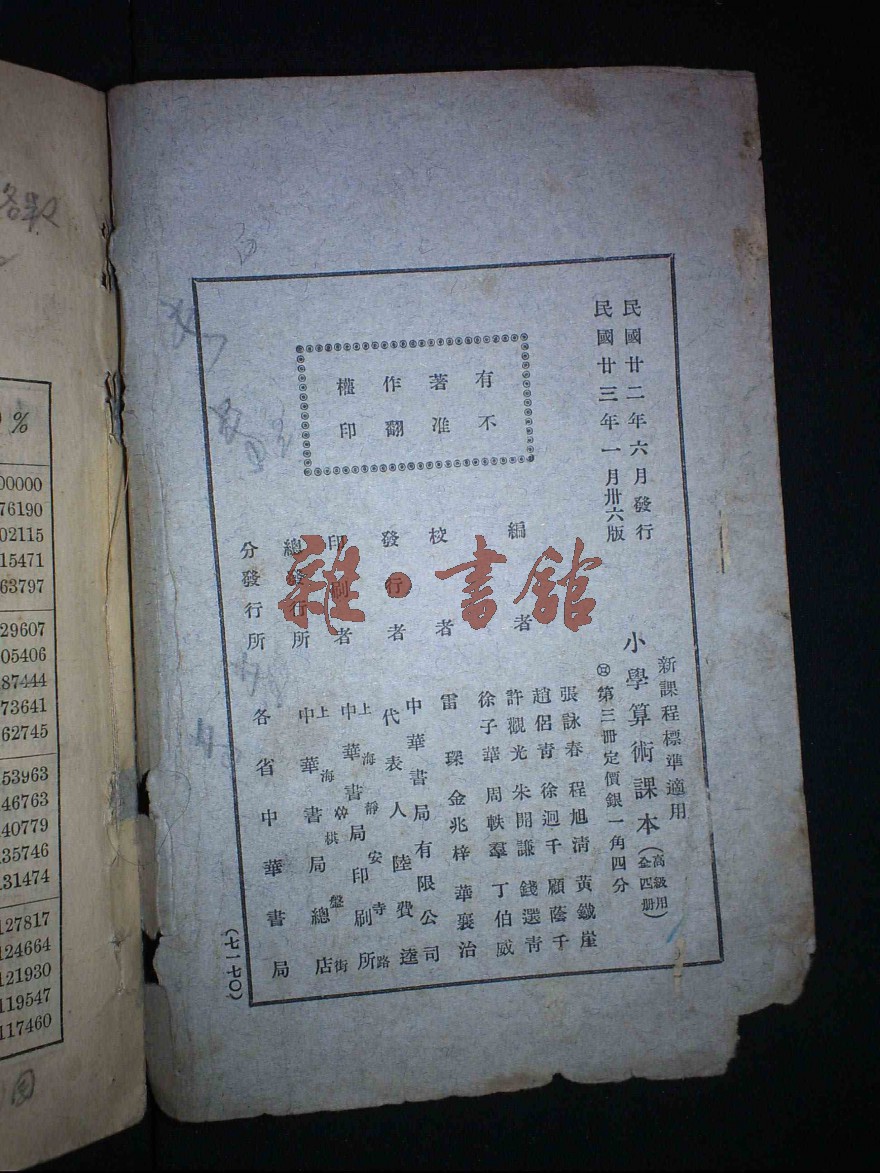 民國廿二年六月發行
民國廿三年一月卅六版
新課程標準適用
小學算術課本(高級用全四册)
第三冊定價銀一角四分
有著作權
不准翻印
編者
張詠春 程旭清 黃鐵崖
趙侶青 徐迥千 顧蔭千
許觀光 朱開謙 錢選青
徐子華 周軼羣 丁伯威
校者
雷琛 金兆梓 華襄治
發行者
中華書局有限公司
代表人 陸費逵
印刷者
上海靜安寺路
中華書局印刷所
總發行所
上海棋盤街
中華書局總店
分發行所
各省中華書局
(七一七〇)
雜·書館
%
00000
76190
02115
15471
63797
29607
05406
87444
73641
62745
53963
46763
40779
35746
31474
127817
124664
121930
119547
117460